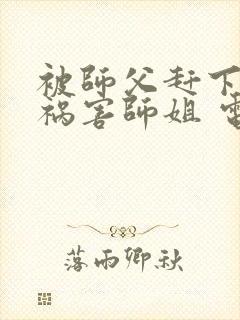 被師父赶下
祸害師姐
落雨卿秋